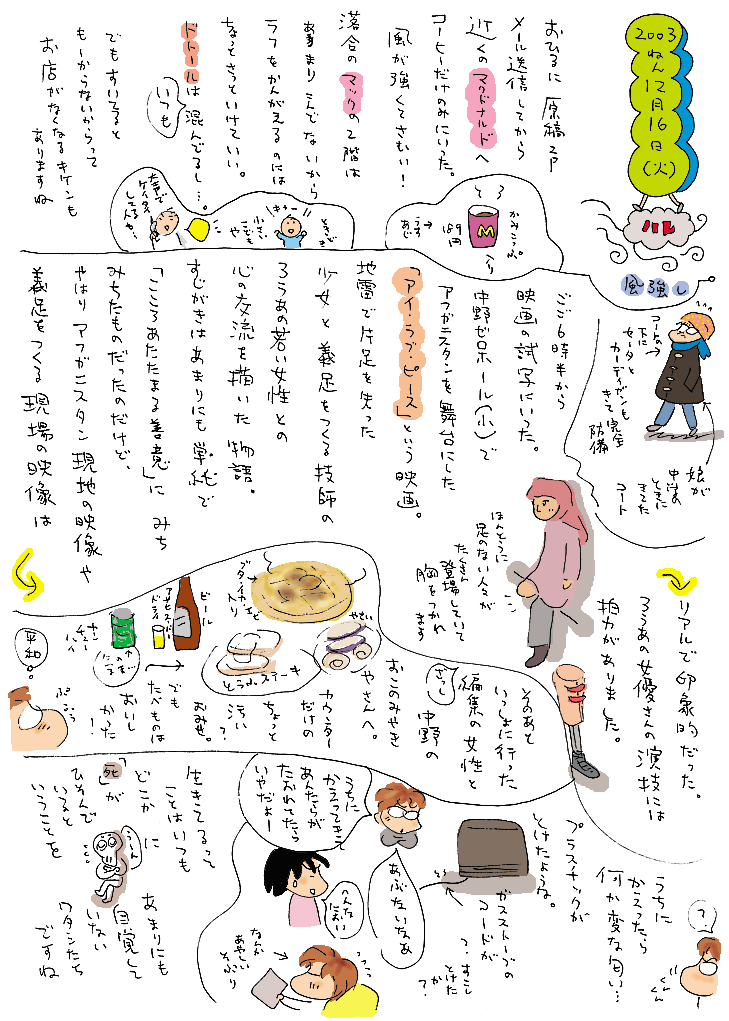 2003
ねん12月16日(火)
ハレ
風強し
おひるに 原稿2P
メール送信してから
近くのマクドナルドへ
コーヒーだけのみにいった。
風が強くてさむい!
落合のマックの2階は
あまりこんでないから
ラフをかんがえるのには
ちょっとさっといけていい。
ドトールは混んでるし…
いつも
でもすいてると
もーからないからって
お店がなくなるキケンも
ありますね
かみコップ。
入り
189円
うす
あじ
M
ときどき
小さい
こども
や
キャー
大声で
ケイタイ
してる人や…
コートの
下に
セーターと
カーディガンも
きて完全
防備
娘が
中学の
ときに
きてた
コート
ごご6時半から
映画の試写にいった。
中野ゼロホール(小)で
アフガニスタンを舞台にした
「アイ・ラブ・ピース」という映画。
地雷で片足を失った
少女と 義足をつくる技師の
ろうあの若い女性との
心の交流を描いた物語。
すじがきはあまりにも単純で
「こころあたたまる善意」に みち
みちたものだったのだけど、
やはり アフガニスタン現地の映像や
義足をつくる現場の映像は
ほんとうに
足のない人々が
たくさん
登場していて
胸をつかれ
ます
リアルで印象的だった。
ろうあの女優さんの演技には
迫力がありました。
そのあと
いっしょに行った
編集の女性と
ざっし
中野の
おこのみやき
やさんへ。
カウンター
だけの
ちょっと
汚い
?
おみせ。
でも
たべものは
おいし
かった
!
ブタ・イカ・エビ
入り
やさい
とうふステーキ
ビール
アサヒスーパー
ドライ
チュー
ハイ
平和。
ぷふぅ
うちに
かえったら
何か変な匂い…
?
くん
くん
プラスチックが
とけたような。
ガスストーブの
コードが
?すこし
とけた
か
?
あぶないなあ
うちに
かえってきて
あんたらが
たおれてたら
いやだよー
へんな
におい
なんか
あやしい
そぶり
生きてるって
ことはいつも
どこかに
「死」が
ひそんで
いると
いうことを
うーん
あまりにも
自覚して
いない
ワタシたち
ですね